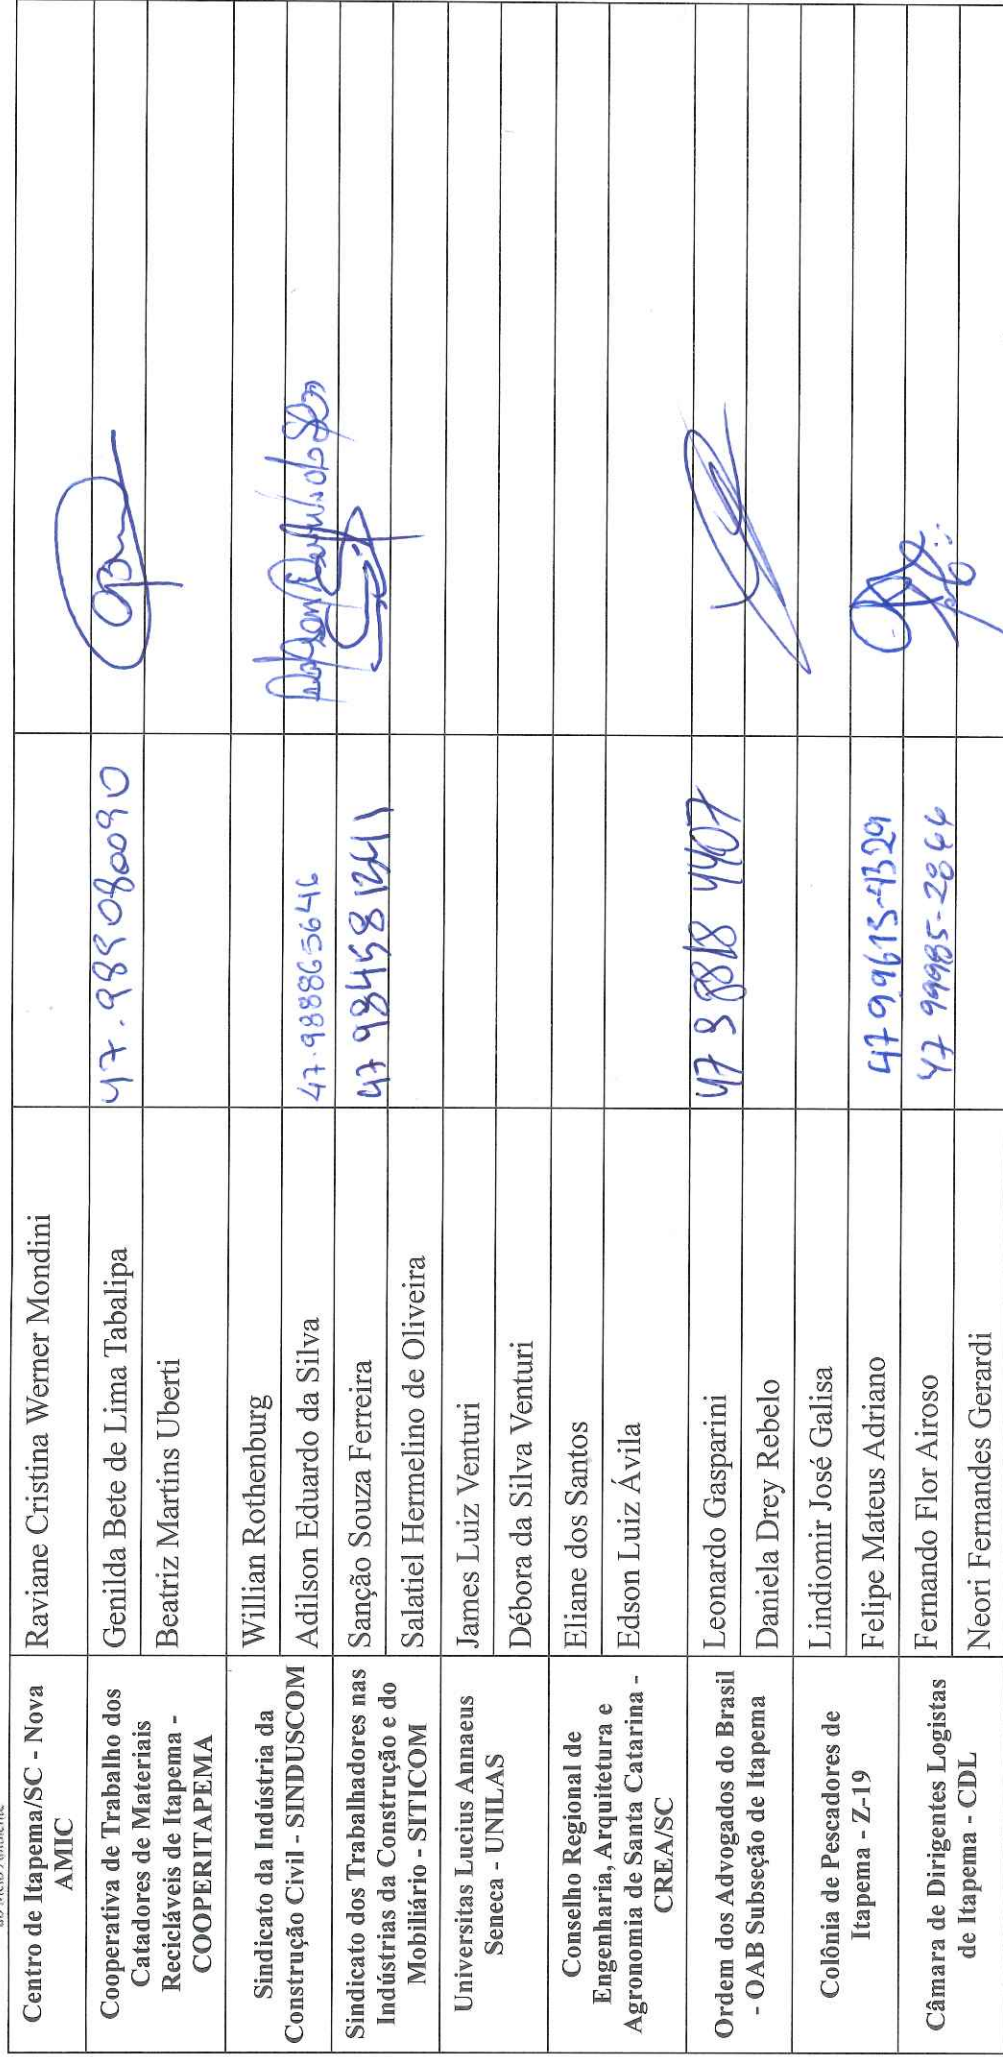 do Meio Ambiente
Centro de Itapema/SC - Nova
AMIC
Raviane Cristina Werner Mondini
Cooperativa de Trabalho dos
Catadores de Materiais
Recicláveis de Itapema -
COOPERITAPEMA
Genilda Bete de Lima Tabalipa
47.989080090
Beatriz Martins Uberti
Sindicato da Indústria da
Construção Civil - SINDUSCOM
Willian Rothenburg
Adilson Eduardo da Silva
47.988865646
Sindicato dos Trabalhadores nas
Indústrias da Construção e do
Mobiliário - SITICOM
Sanção Souza Ferreira
47 98458 1241
Salatiel Hermelino de Oliveira
Universitas Lucius Annaeus
Seneca - UNILAS
James Luiz Venturi
Débora da Silva Venturi
Conselho Regional de
Engenharia, Arquitetura e
Agronomia de Santa Catarina -
CREA/SC
Eliane dos Santos
Edson Luiz Ávila
Ordem dos Advogados do Brasil
- OAB Subseção de Itapema
Leonardo Gasparini
47 9 8818 4407
Daniela Drey Rebelo
Colônia de Pescadores de
Itapema - Z-19
Lindiomir José Galisa
Felipe Mateus Adriano
47 99615-4329
Câmara de Dirigentes Logistas
de Itapema - CDL
Fernando Flor Airoso
47 99985-2866
Neori Fernandes Gerardi